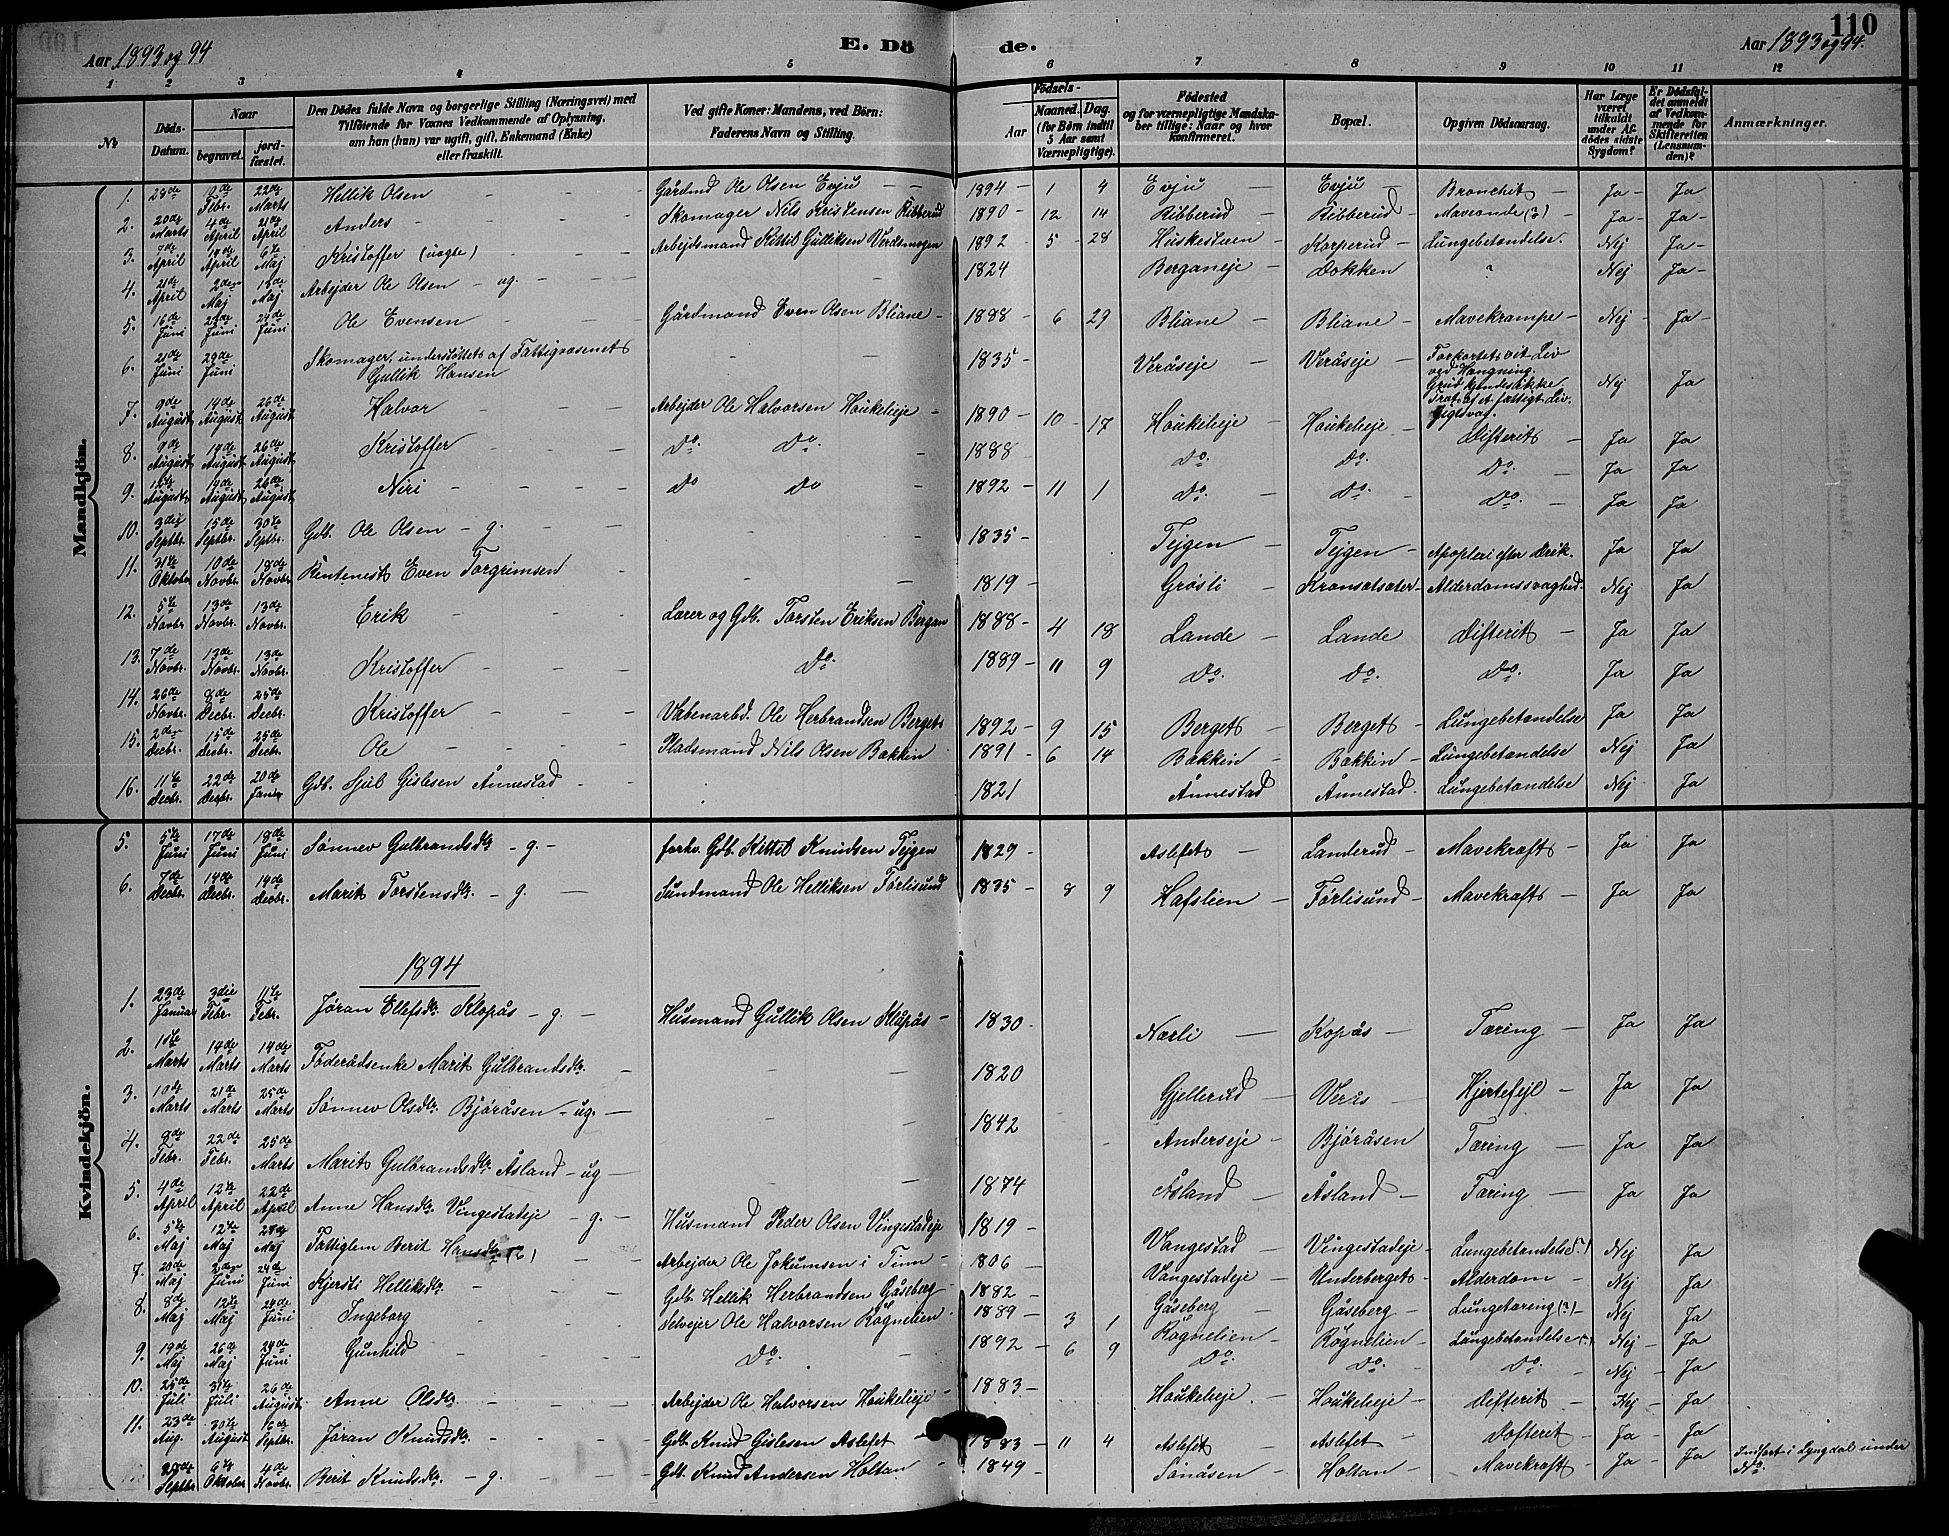 110
Aar 1893 og 94
E. Dö de.
Aar 1893 og 94.
1 2 3 4 5 6 7 8 9 10 11 12
No
Döds-Datum.
Naar
begravet.
jord-fæstet.
Den Dödes fulde Navn og borgerlige Stilling (Næringsvei) med
Tilföiende for Voxnes Vedkommende af Oplysning,
om han (hun) var ugift, gift, Enkemand (Enke)
eller fraskilt.
Ved gifte Koner: Mandens, ved Börn:
Faderens Navn og Stilling.
Födsels-
Aar
Maaned. Dag.
(for Börn indtil
5 Aar samt
Værnepligtige).
Födested
og for værnepligtige Mandska-
ber tillige: Naar og hvor
konfirmeret.
Bopæl.
Opgiven Dödsaarsag.
Har Læge
været
tilkaldt
under Af-
dödes sidste
Sygdom?
Er Dödsfal-
det anmeldt
af Vedkom-
mende for
Skifteretten
(Lensman-
den)?
Anmærkninger.
Mandkjön.
1. 28de 9de Febr. 22de Marts Hellik Olsen Gårdmd Ole Olsen Evju 1894 1 4 Evju Evju Bronchit Ja Ja
2. 20de Marts 4de April 21de April Anders Skomager Nils Kristensen Ribberud 1890 12 14 Ribberud Ribberud Maveonde (?) Ja Ja
3. 7de April 19de April 6te Maj Kristoffer (uægte) Arbejdsmand Kittil Gulliksen Verdemogen 1892 5 28 Huskestuen Korperud Lungebetændelse. Nej Ja
4. 21de April 2den Maj 15de Maj Arbejder Ole Olsen - ug. 1824 Berganeje Dokken ? Nej Ja
5. 16de Juni 24de Juni 24de Juni Ole Evensen Gårdmand Even Olsen Bliane 1888 6 29 Bliane Bliane Mavekrampe Nej Ja
6. 21de Juni 29de Juni Skomager, understøttet af Fattigvæsenet Gullik Hansen 1835 Veråseje Veråseje Forkortet sit Liv ved Hængning. Nej Ja
7. 9de August 14de August 26de August Halvor Arbejder Ole Halvorsen Houkelieje 1890 10 17 Houkelieje Houkelieje Difterit Ja Ja
8. 9de August 19de August 26de August Kristoffer Do. Do. 1888 Do. Do. Do. Ja Ja
9. 12te August 19de August 26de August Niri Do Do 1892 11 1 Do. Do. Do. Ja Ja
10. 3die Septbr. 15de Septbr. 30te Septbr. Gdb. Ole Olsen - g. 1835 Tejgen Tejgen Apoplexi efter Drik. Ja Ja
11. 31te Oktober 10de Novbr. 18de Novbr. Rentenest Even Torgrimsen 1819 Grøsli Alderdomssvaghed. Nej Ja
12. 5te Novbr. 13de Novbr. 13de Novbr. Erik Lærer og Gdb. Torsten Eriksen Bergan 1888 4 18 Lande Lande Difterit Ja Ja
13. 7de Novbr. 13de Novbr. 13de Novbr. Kristoffer Do. 1889 11 9 Do. Do. Do. Ja Ja
14. 26de Novbr. 8de Decbr. 25de Decbr. Kristoffer Vabenarbd. Ole Herbrandsen Berget 1892 9 15 Berget Berget Lungebetændelse Ja Ja
15. 2den Decbr. 15de Decbr. 25de Decbr. Ole Pladsmand Nils Olsen Bakkin 1891 6 14 Bakkin Bakkin Lungebetændelse Nej Ja
16. 11te Decbr. 22de Decbr. 20de Januar Gdb. Hjul Gislesen Ånnestad 1821 Ånnestad Ånnestad Lungebetændelse Nej Ja
Kvindekjön.
5. 5te Juni 17de Juni 18de Juni Sønnev Gulbrandsdtr - g. - forhv. Gdb. Kittil Knudsen Tejgen 1829 Aslefet Landerud Mavekræft Ja Ja
6. 7de Decbr. 14de Decbr. 14de Decbr. Marit Torstensdtr. - g. Sundmand Ole Helliksen Førlisund 1835 8 9 Hafslien Førlisund Mavekræft Ja Ja
1894
1. 23de Januar 3die Febr. 11te Febr. Jøran Ellefsdtr. Klopås - g. - Husmand Gullik Olsen Klopås 1830 Nørli Kopås Tæring Ja Ja
2. 1ste Marts 14de Marts 14de Marts Føderådsenke Marit Gulbrandsdtr. 1820 Gjellerud Verås Hjertefejl Ja Ja
3. 10de Marts 21de Marts 25de Marts Sønnev Olsdtr. Bjøråsen - ug. 1842 Anderseje Bjøråsen Tæring Ja Ja
4. 9de Febr. 22de Febr. 25de Marts Marit Gulbrandsdtr. Åsland - ug 1874 Åsland Åsland Tæring Ja Ja
5. 4de April 12te April 22de April Anne Hansdtr. Vingestadeje - g. Husmand Peder Olsen Vingestadeje 1819 Vangestad Vingestadeje Lungebetændelse (?) Nej Ja
6. 5te Maj 12te Maj Maj Fattiglem Berit Hansdtr. Arbejder Ole Jokumsen i Tinn 1806 Vangestadeje Underberget Alderdom Nej Ja
7. 20de Maj 2den Juni 24de Juni Kjersti Helliksdtr. Gdb. Hellik Herbrandsen Gåseberg 1882 Gåseberg Gåseberg Lungetæring (?) Nej Ja
8. 8de Maj 12te Maj 24de Juni Ingeborg Selvejer Ole Halvorsen Rögnelien 1889 3 1 Rögnelien Rögnelien Lungebetændelse (?) Nej Ja
9. 19de Maj 26de Maj 24de Juni Gunhild Do. 1892 6 9 Do. Do. Do. Nej Ja
10. 25de Juli 31te Juli 26de August Anne Olsdtr. Arbejder Ole Halvorsen Houkelieje 1883 Houkelieje Houkelieje Difterit Nej Ja
11. 23de Aug. 30te August 16de Septbr. Jøran Knudsdtr. Gdb. Knud Gislesen Aslefet 1883 11 4 Aslefet Aslefet Difterit Ja Ja
28de Septbr 6te Oktober 4de Novbr. Berit Knudsdtr. - g. Gdb. Knud Andersen Holtan 1849 Sønåsen Holtan Mavekræft Ja Ja Indført i Lyngdal under No.